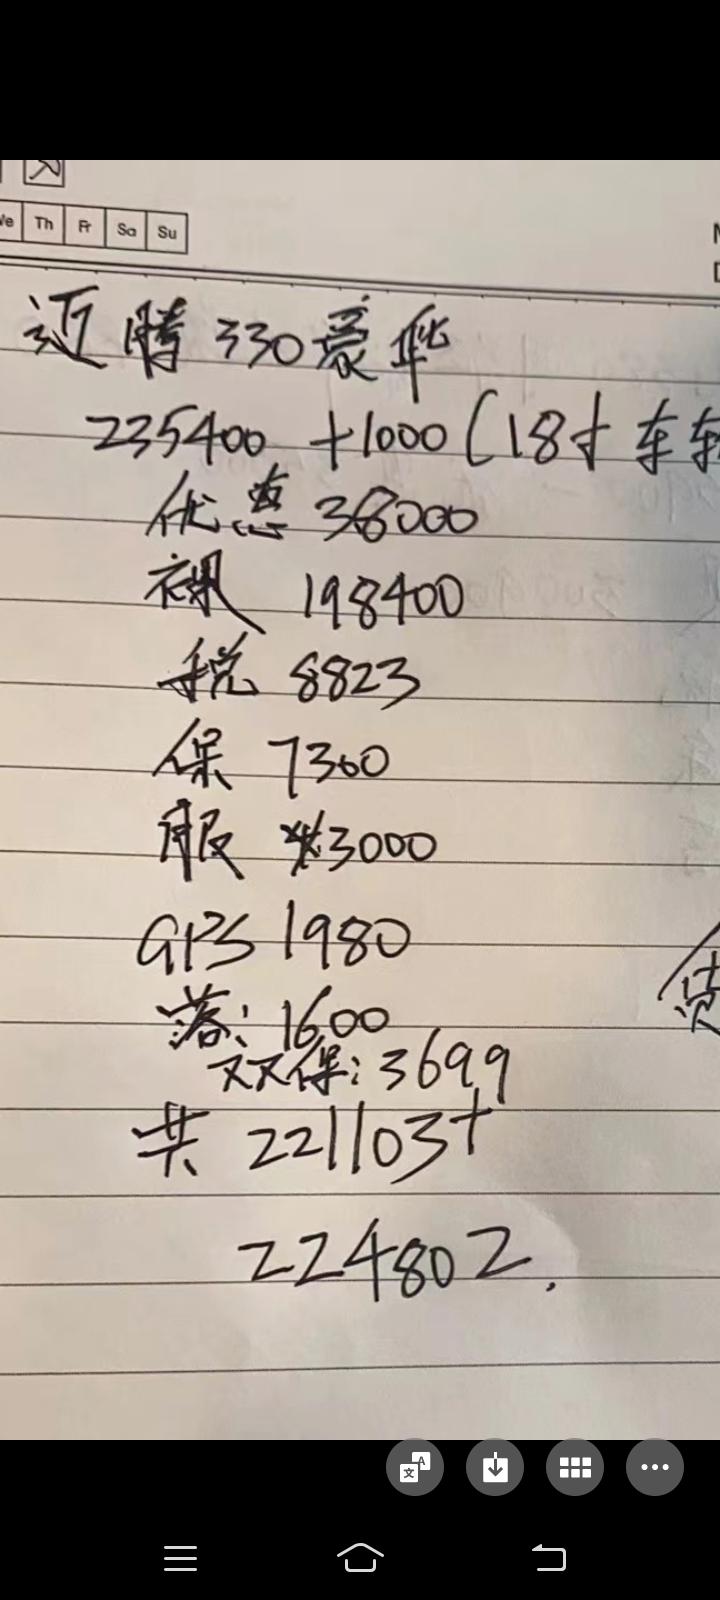 Th Fr Sa Su
迈腾330豪华
235400 +1000(18寸车轮
优惠 38000
裸 198400
税 8823
保 7300
服 3000
GPS 1980
落: 1600
双保: 3699
共 221103+
224802.